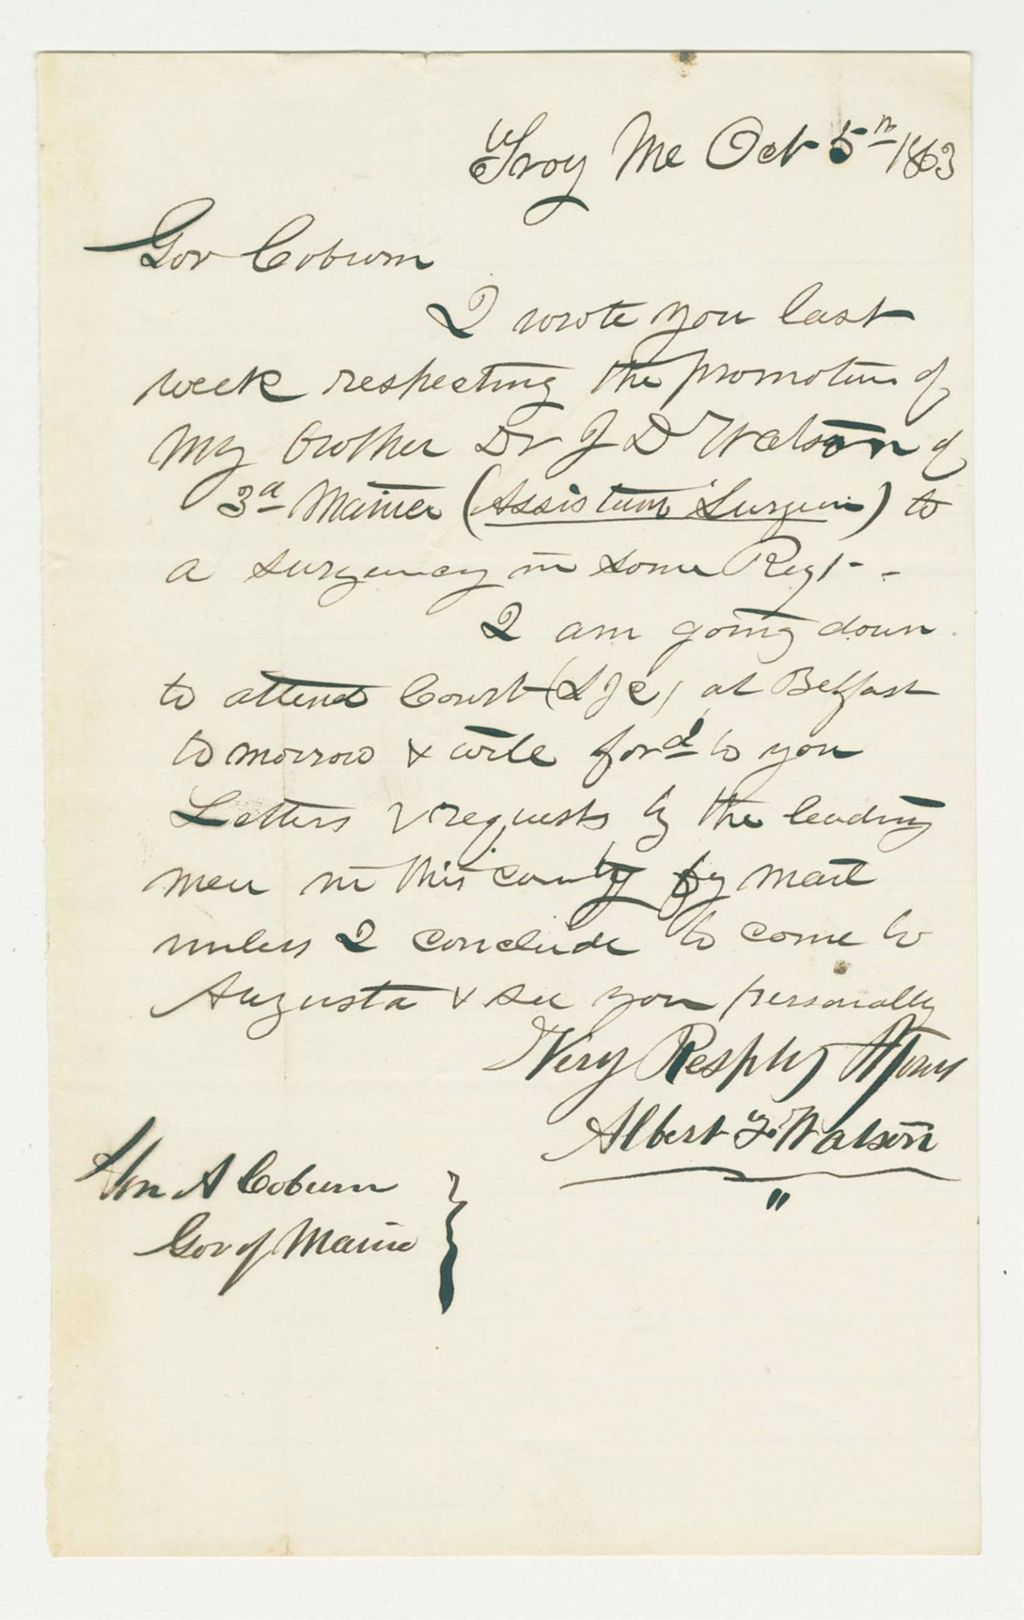 Troy Me Oct 5th 1863
Gov Coburn
I wrote you last
week respecting the promotion of
my brother Dr J D Watson of
3d Maine (Assistant Surgeon) to
a surgency in some Regt -
I am going down
to attend Court (S J C) at Belfast
tomorrow & will ford to you
Letters & requests by the leading
men in this county by mail
unless I conclude to come to
Augusta & see you personally
Very Resptly Yours
Albert F. Watson
Hon A Coburn
Gov of Maine